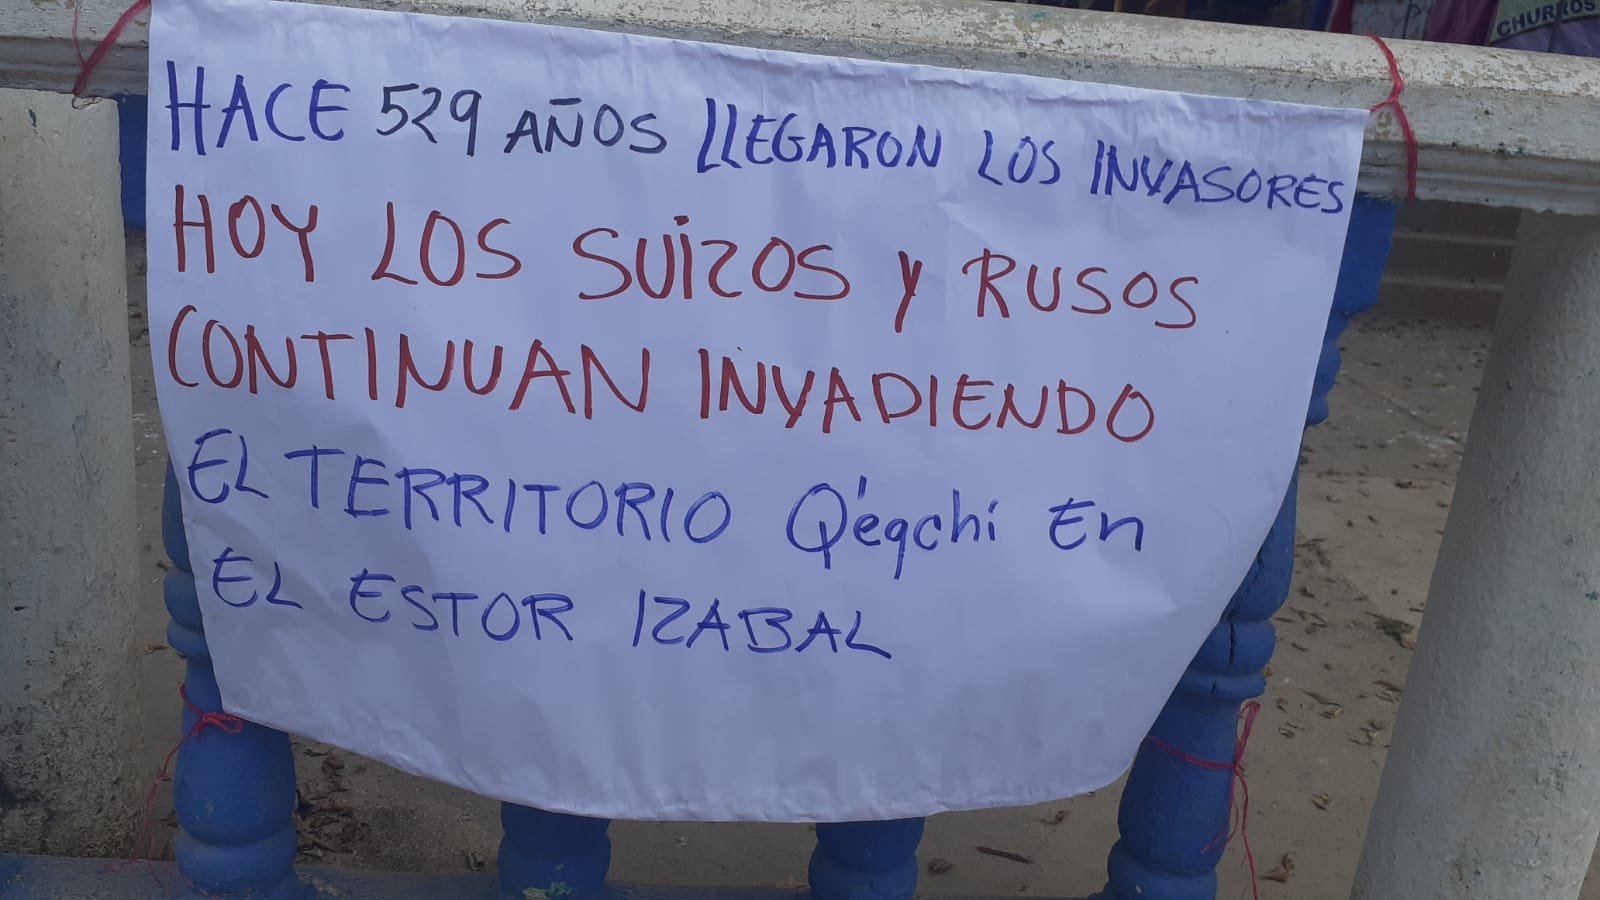 CHURROS
HACE 529 AÑOS LLEGARON LOS INVASORES
HOY LOS SUIZOS Y RUSOS
CONTINUAN INVADIENDO
EL TERRITORIO Q'eqchi En
EL ESTOR IZABAL